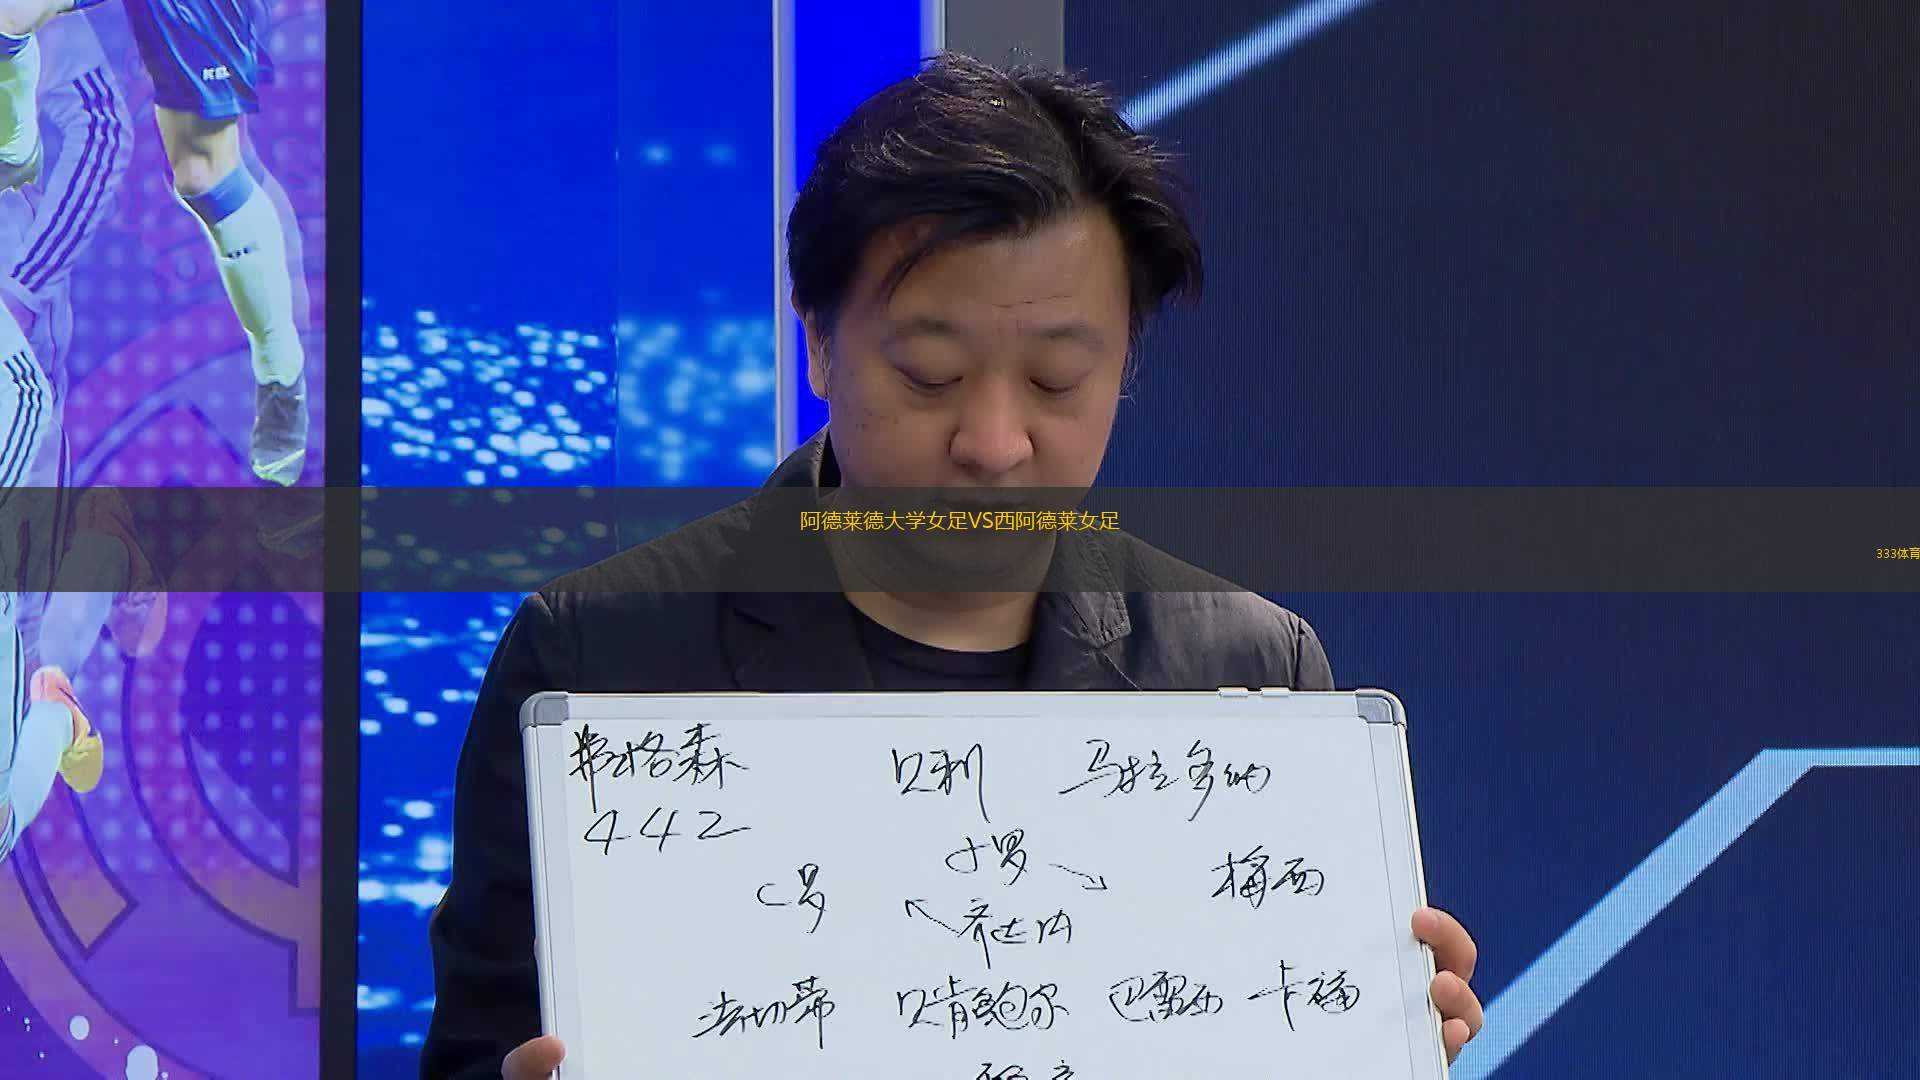 阿德莱德大学女足VS西阿德莱女足
333体育
弗格森 贝利 马拉多纳
442
小罗
C罗 梅西
齐达内
法切蒂 贝肯鲍尔 巴雷西 卡福